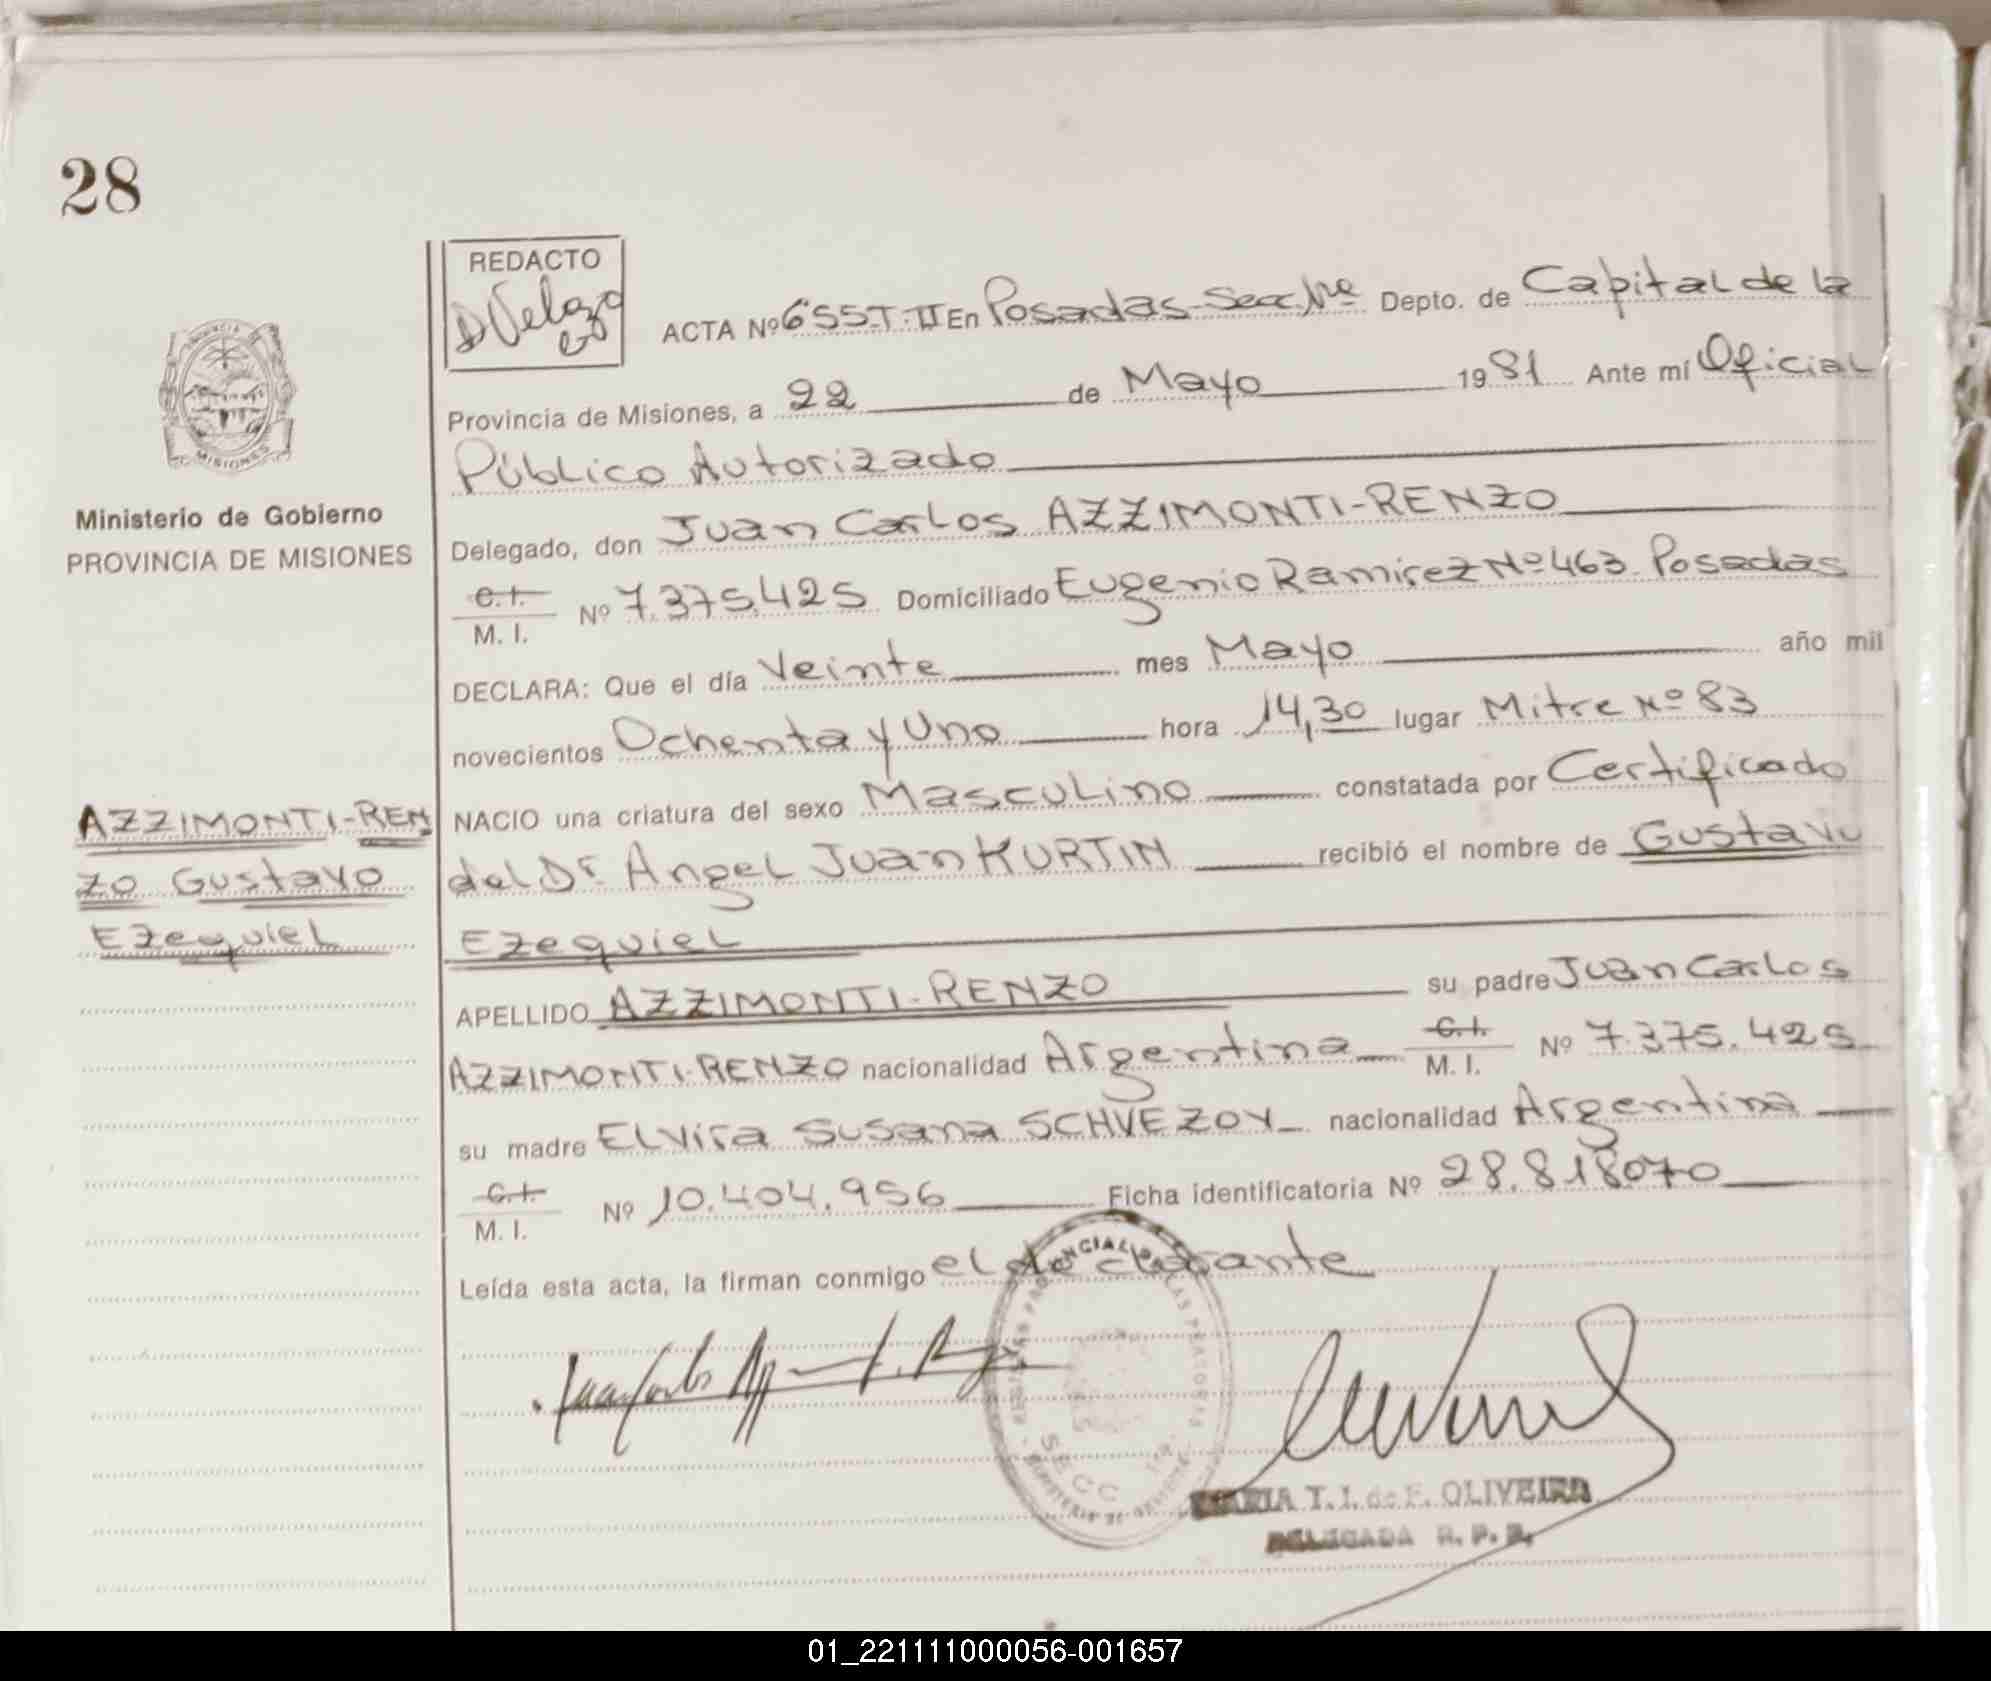 28
REDACTO
D Velazo
PROVINCIA
MISIONES
Ministerio de Gobierno
PROVINCIA DE MISIONES
ACTA Nº 655-T-II En Posadas-Secc. 1ra Depto. de Capital de la
Provincia de Misiones, a 22 de Mayo 1981 Ante mí Oficial
Público Autorizado
Delegado, don Juan Carlos AZZIMONTI-RENZO
C. I.
M. I. Nº 7.375.425 Domiciliado Eugenio Ramirez Nº 463. Posadas
DECLARA: Que el día Veinte mes Mayo año mil
novecientos Ochenta y Uno hora 14,30 lugar Mitre Nº 83
NACIO una criatura del sexo Masculino constatada por Certificado
del Dr. Angel Juan KURTIN recibió el nombre de Gustavo
Ezequiel
AZZIMONTI-REN
ZO Gustavo
Ezequiel
APELLIDO AZZIMONTI-RENZO su padre Juan Carlos
AZZIMONTI-RENZO nacionalidad Argentina C. I.
M. I. Nº 7.375.425
su madre Elvira Susana SCHVEZOV nacionalidad Argentina
C. I.
M. I. Nº 10.404.956 Ficha identificatoria Nº 28.818070
Leída esta acta, la firman conmigo el declarante
Juan Carlos
SECC
MARIA T. I. de F. OLIVEIRA
DELEGADA R. P. P.
01_221111000056-001657